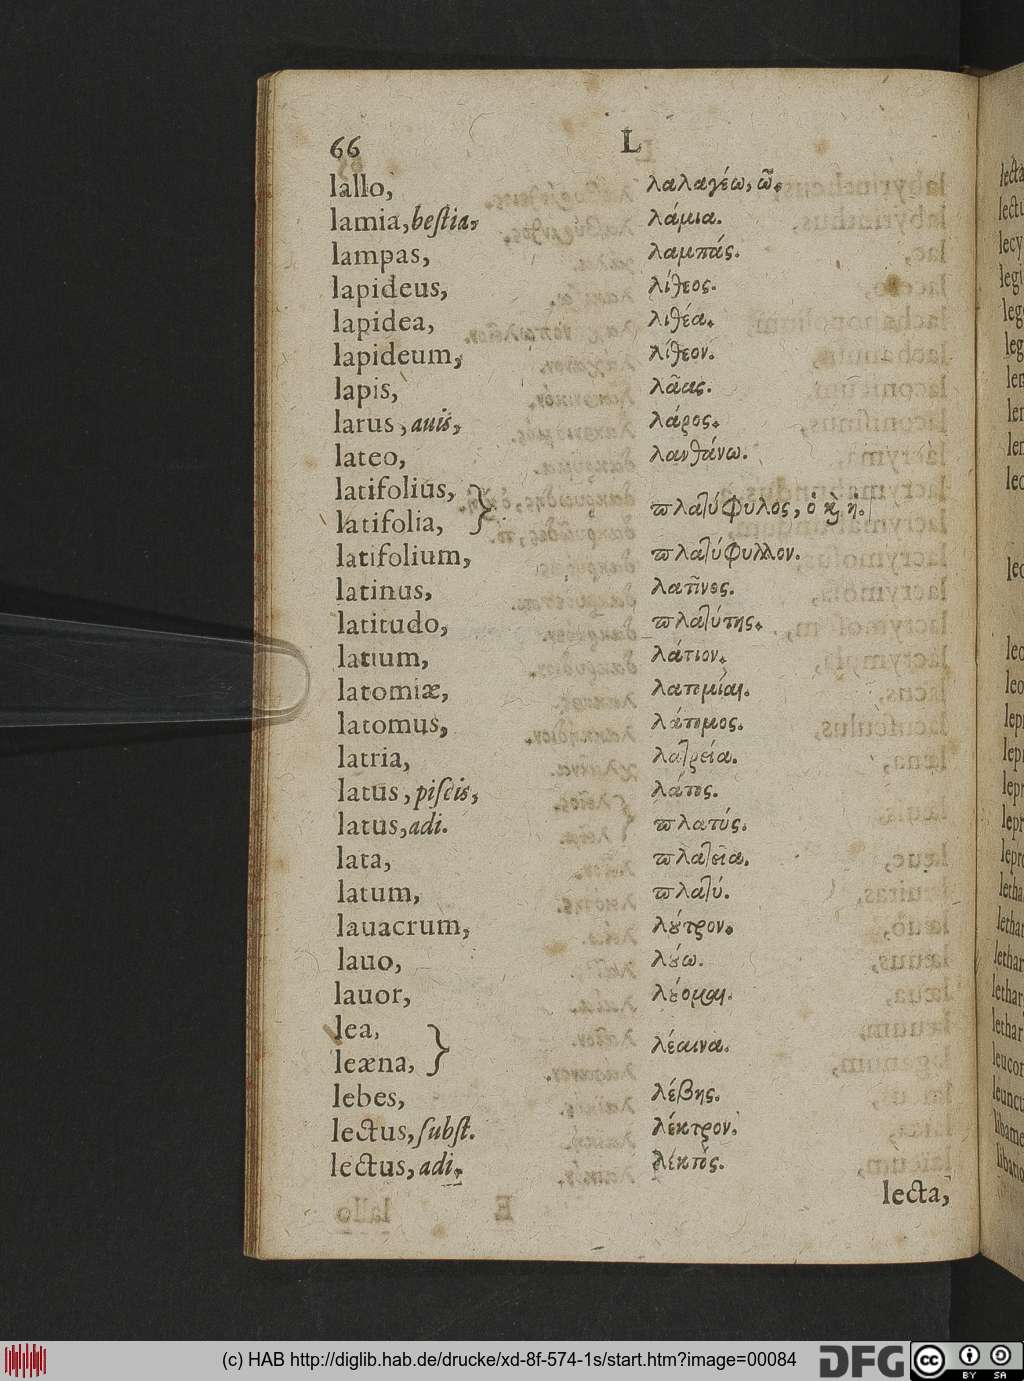 66 L
lallo, λαλαγέω, ῶ.
lamia, beſtia, λάμια.
lampas, λαμπάς.
lapideus, λίθεος.
lapidea, λιθέα.
lapideum, λίθεον.
lapis, λᾶας.
larus, auis, λάρος.
lateo, λανθάνω.
latifolius,
latifolia, } πλατύφυλος, ὁ κὴ ἡ.
latifolium, πλατύφυλλον.
latinus, λατῖνος.
latitudo, πλατύτης.
latium, λάτιον.
latomiæ, λατομίαι.
latomus, λάτομος.
latria, λατρεία.
latus, piſcis, λάτος.
latus, adi. πλατύς.
lata, πλατεῖα.
latum, πλατύ.
lauacrum, λȣ́τρον.
lauo, λȣ́ω.
lauor, λȣ́ομαι.
lea,
leæna, } λέαινα.
lebes, λέβης.
lectus, ſubſt. λέκτρον.
lectus, adi. λέκτὸς.
lecta,
(c) HAB http://diglib.hab.de/drucke/xd-8f-574-1s/start.htm?image=00084
DFG
cc BY SA